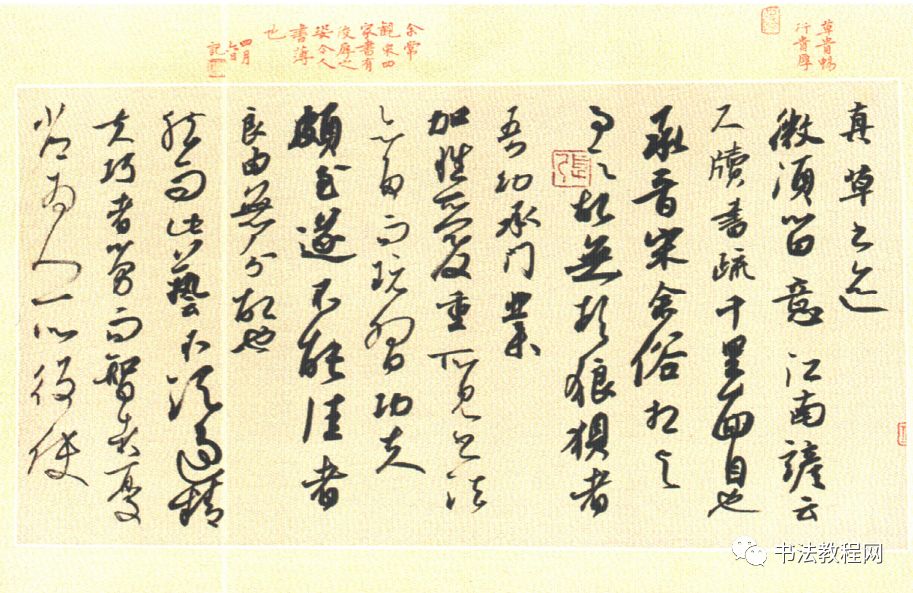 草貴暢
行貴厚
余常
觀宋四
家書有
厚之
姿今人
書薄
也
四月
六日
記
真草书迹
微須留意江南諺云
尺牘書疏千里面目也
承晉宋余俗相与
事之故無頓狼狽者
吾幼承门業
加性所愛重所見书法
亦多而玩習功夫
頗至遂不能佳者
良由無分故也
然而此藝不須過精
夫巧者勞而智者憂
常為人所役使
張
书法教程网